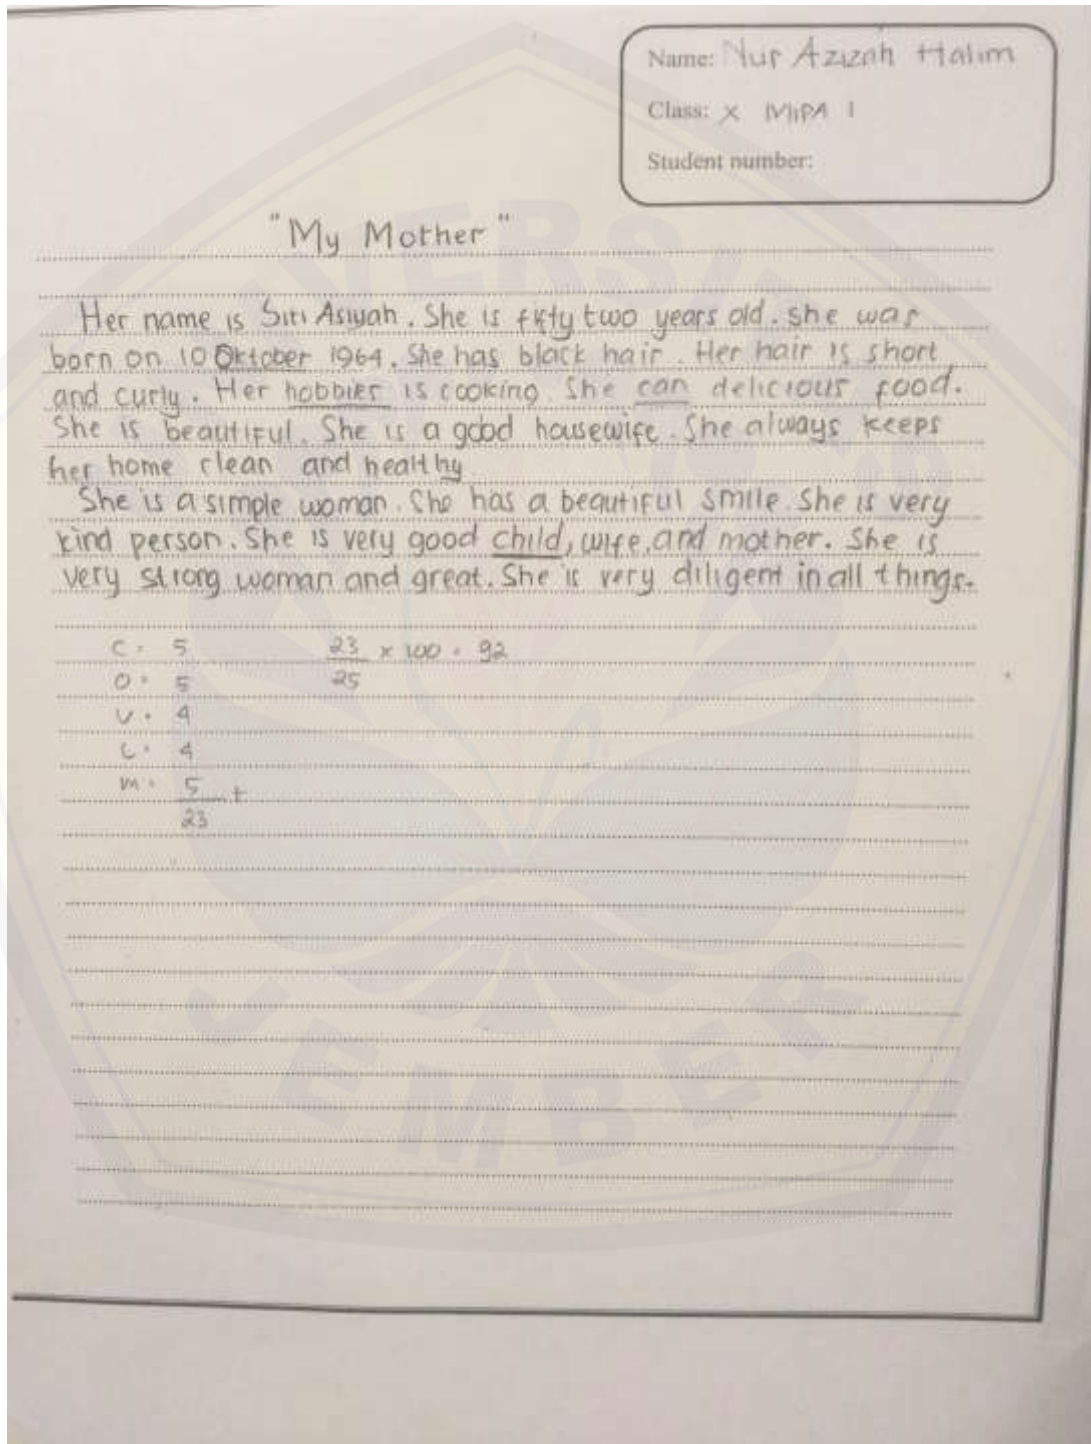 Name: Nur Azizah Halim
Class: X MIPA 1
Student number:
"My Mother"
Her name is Siti Asiyah. She is fifty two years old. she was
born on 10 Oktober 1964. She has black hair. Her hair is short
and curly. Her hobbies is cooking. She can delicious food.
She is beautiful. She is a good housewife. She always keeps
her home clean and healthy
She is a simple woman. She has a beautiful smile. She is very
kind person. She is very good child, wife, and mother. She is
very strong woman and great. She is very diligent in all things.
C = 5
O = 5
V = 4
L = 4
m = 5 +
23
23 × 100 = 92
25
UNIVERSITAS
JEMBER